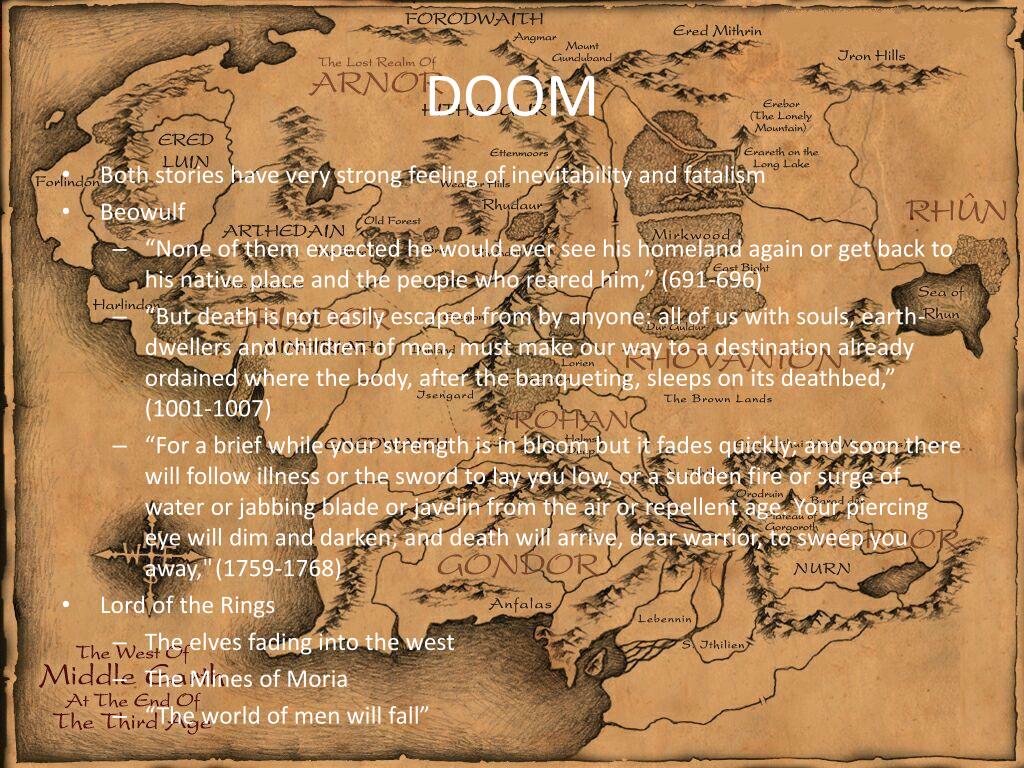 FORODWAITH
Ered Mithrin
Angmar
Mount
Gundabad
Iron Hills
The Lost Realm Of
ARNOR
DOOM
Erebor
(The Lonely
Mountain)
ERED
LUIN
Ettenmoors
Erareth on the
Long Lake
• Both stories have very strong feeling of inevitability and fatalism
Forlindon
Weather Hills
• Beowulf
Rhudaur
RHÛN
Old Forest
ARTHEDAIN
Mirkwood
– “None of them expected he would ever see his homeland again or get back to
his native place and the people who reared him,” (691-696)
East Bight
Harlindon
Sea of
Rhun
– “But death is not easily escaped from by anyone: all of us with souls, earth-
dwellers and children of men, must make our way to a destination already
ordained where the body, after the banqueting, sleeps on its deathbed,”
(1001-1007)
Dur Guldur
RHOVANION
Lorien
Isengard
The Brown Lands
ROHAN
– “For a brief while your strength is in bloom but it fades quickly; and soon there
will follow illness or the sword to lay you low, or a sudden fire or surge of
water or jabbing blade or javelin from the air or repellent age. Your piercing
eye will dim and darken; and death will arrive, dear warrior, to sweep you
away," (1759-1768)
Orodruin
Barad dur
Plateau of
Gorgoroth
MORDOR
GONDOR
NURN
• Lord of the Rings
Anfalas
Lebennin
S. Ithilien
– The elves fading into the west
– The Mines of Moria
– “The world of men will fall”
The West Of
Middle Earth
At The End Of
The Third Age